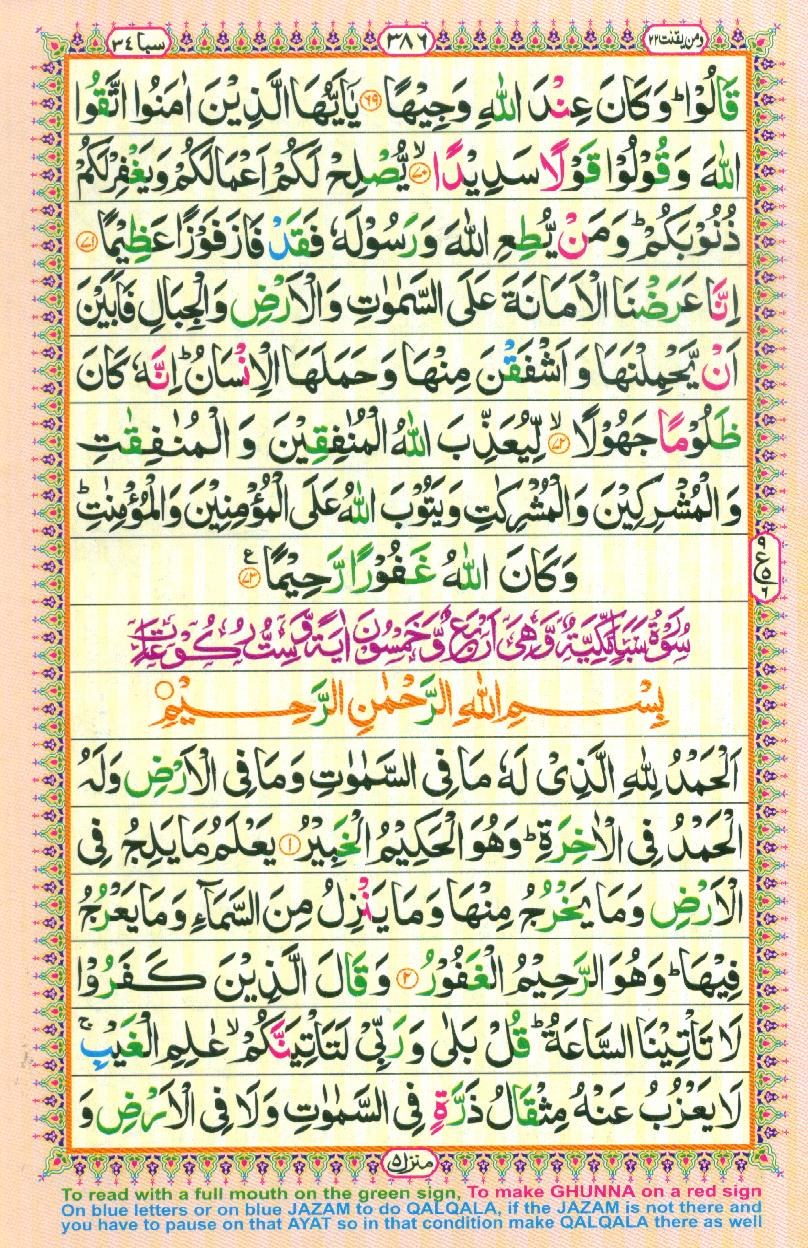 ومن یقنت ۲۲ ۳۸۶ سبا ۳۴
قَالُوْا ؕ وَكَانَ عِنْدَ اللّٰهِ وَجِیْهًا ﴿۶۹﴾ یٰۤاَیُّهَا الَّذِیْنَ اٰمَنُوا اتَّقُوا
اللّٰهَ وَ قُوْلُوْا قَوْلًا سَدِیْدًا ﴿۷۰﴾ۙ یُّصْلِحْ لَكُمْ اَعْمَالَكُمْ وَیَغْفِرْ لَكُمْ
ذُنُوْبَكُمْ ؕ وَ مَنْ یُّطِعِ اللّٰهَ وَ رَسُوْلَهٗ فَقَدْ فَازَ فَوْزًا عَظِیْمًا ﴿۷۱﴾
اِنَّا عَرَضْنَا الْاَمَانَةَ عَلَی السَّمٰوٰتِ وَ الْاَرْضِ وَ الْجِبَالِ فَاَبَیْنَ
اَنْ یَّحْمِلْنَهَا وَ اَشْفَقْنَ مِنْهَا وَ حَمَلَهَا الْاِنْسَانُ ؕ اِنَّهٗ كَانَ
ظَلُوْمًا جَهُوْلًا ﴿۷۲﴾ۙ لِّیُعَذِّبَ اللّٰهُ الْمُنٰفِقِیْنَ وَ الْمُنٰفِقٰتِ
وَ الْمُشْرِكِیْنَ وَ الْمُشْرِكٰتِ وَ یَتُوْبَ اللّٰهُ عَلَی الْمُؤْمِنِیْنَ وَ الْمُؤْمِنٰتِ ؕ
وَ كَانَ اللّٰهُ غَفُوْرًا رَّحِیْمًا ﴿۷۳﴾ ع
۹
ع
۵
۶
سُوْرَةُ سَبَاٍ مَّكِّیَّةٌ وَّ هِیَ اَرْبَعٌ وَّ خَمْسُوْنَ اٰیَةً وَّ سِتُّ رُكُوْعَاتٍ
بِسْمِ اللّٰهِ الرَّحْمٰنِ الرَّحِیْمِ
اَلْحَمْدُ لِلّٰهِ الَّذِیْ لَهٗ مَا فِی السَّمٰوٰتِ وَ مَا فِی الْاَرْضِ وَ لَهُ
الْحَمْدُ فِی الْاٰخِرَةِ ؕ وَ هُوَ الْحَكِیْمُ الْخَبِیْرُ ﴿۱﴾ یَعْلَمُ مَا یَلِجُ فِی
الْاَرْضِ وَ مَا یَخْرُجُ مِنْهَا وَ مَا یَنْزِلُ مِنَ السَّمَآءِ وَ مَا یَعْرُجُ
فِیْهَا ؕ وَ هُوَ الرَّحِیْمُ الْغَفُوْرُ ﴿۲﴾ وَ قَالَ الَّذِیْنَ كَفَرُوْا
لَا تَاْتِیْنَا السَّاعَةُ ؕ قُلْ بَلٰی وَ رَبِّیْ لَتَاْتِیَنَّكُمْ ۙ عٰلِمِ الْغَیْبِ ۚ
لَا یَعْزُبُ عَنْهُ مِثْقَالُ ذَرَّةٍ فِی السَّمٰوٰتِ وَ لَا فِی الْاَرْضِ وَ
منزل ۵
To read with a full mouth on the green sign, To make GHUNNA on a red sign
On blue letters or on blue JAZAM to do QALQALA, if the JAZAM is not there and
you have to pause on that AYAT so in that condition make QALQALA there as well